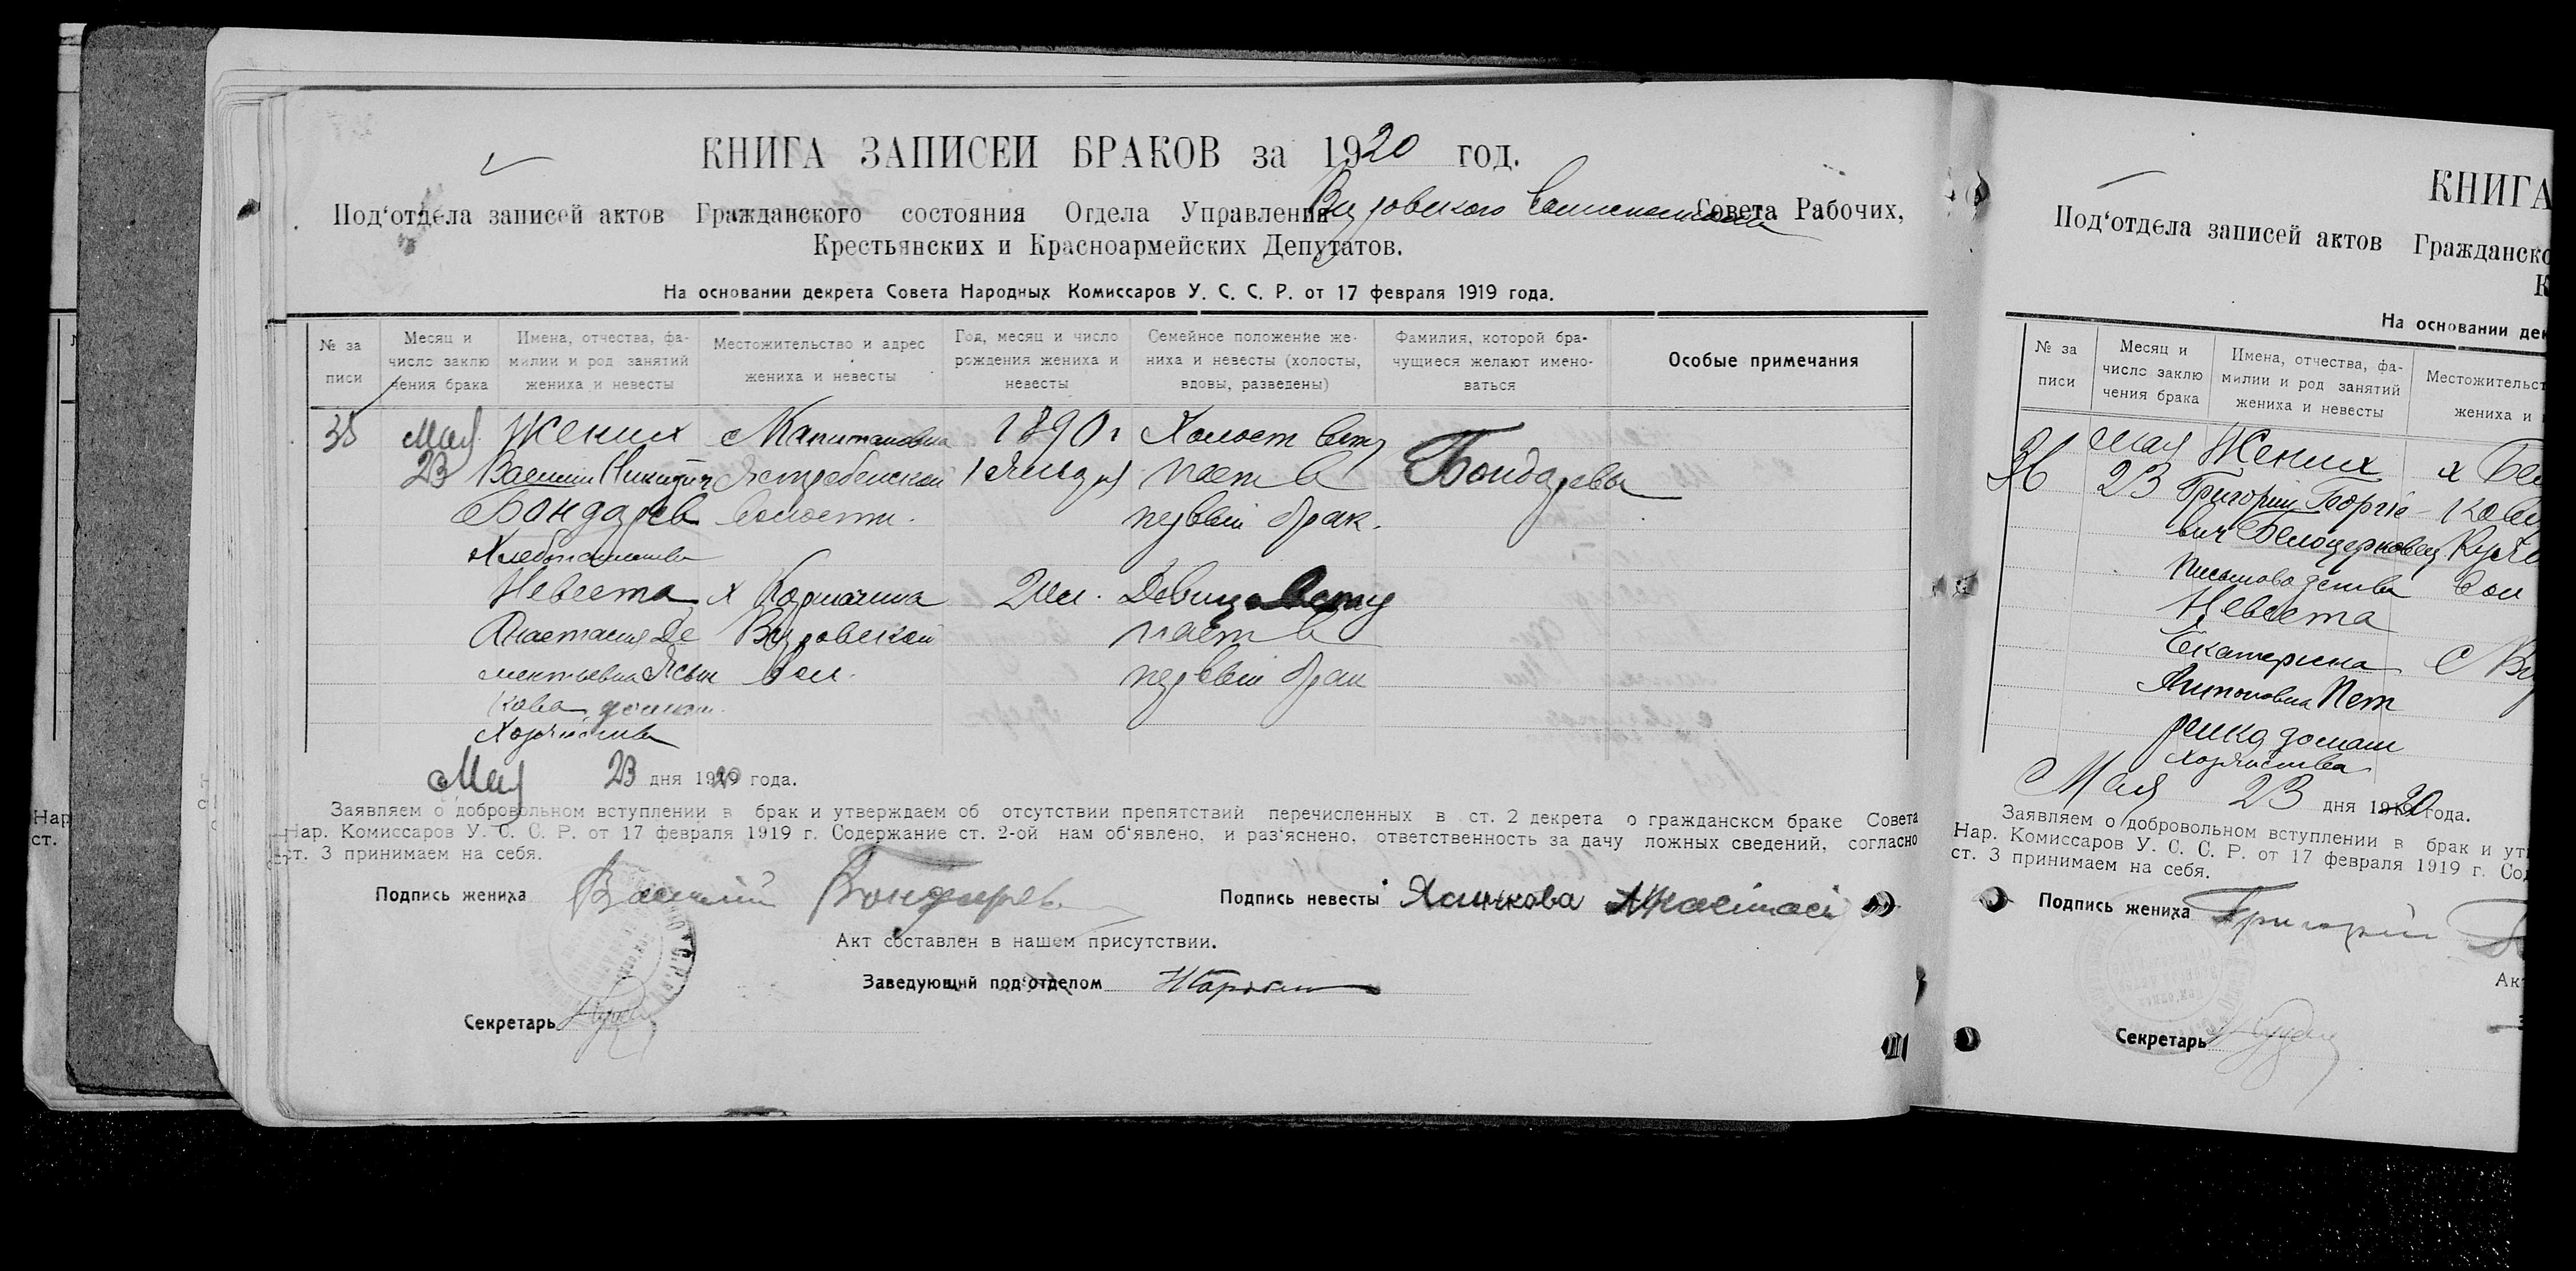 КНИГА ЗАПИСЕЙ БРАКОВ за 1920 год.
Под'отдела записей актов Гражданского состояния Отдела Управления Совета Рабочих,
Крестьянских и Красноармейских Депутатов.
На основании декрета Совета Народных Комиссаров У. С. С. Р. от 17 февраля 1919 года.
№ за
писи
Месяц и
число заклю
чения брака
Имена, отчества, фа-
милии и род занятий
жениха и невесты
Местожительство и адрес
жениха и невесты
Год, месяц и число
рождения жениха и
невесты
Семейное положение же-
ниха и невесты (холосты,
вдовы, разведены)
Фамилия, которой бра-
чущиеся желают имено-
ваться
Особые примечания
35
Мая
23
Жених
Василий Никитич
Бондарев
Хлебопашество
Невеста
Анастасия Де
ментьевна Ясын
кова домаш.
Хозяйство
Ястребенской
волости.
х
вол.
1890 г
1 Января
20 л.
Холост всту
пает в
первый брак.
Девица всту
пает в
первый брак
Бондаревы
Мая 23 дня 1920 года.
Заявляем о добровольном вступлении в брак и утверждаем об отсутствии препятствий перечисленных в ст. 2 декрета о гражданском браке Совета
Нар. Комиссаров У. С. С. Р. от 17 февраля 1919 г. Содержание ст. 2-ой нам об'явлено, и раз'яснено, ответственность за дачу ложных сведений, согласно
ст. 3 принимаем на себя.
Подпись жениха Василий Бондарев
Подпись невесты Анастасия
Акт составлен в нашем присутствии.
Заведующий под'отделом
Секретарь
КНИГА
Под'отдела записей актов Гражданско
К
На основании дек
№ за
писи
Месяц и
число заклю
чения брака
Имена, отчества, фа-
милии и род занятий
жениха и невесты
Местожительст
жениха и
36
мая
23
Жених
Григорий Георгие-
вич Белоцерковец
Письмоводство
Невеста
Екатерина
Антоновна Пет
ренко домаш
хозяйство
х Бел
вол
Мая 23 дня 1920 года.
Заявляем о добровольном вступлении в брак и ут
Нар. Комиссаров У. С. С. Р. от 17 февраля 1919 г. Сод
ст. 3 принимаем на себя.
Подпись жениха Григорий
Ак
Секретарь
Нар
ст.